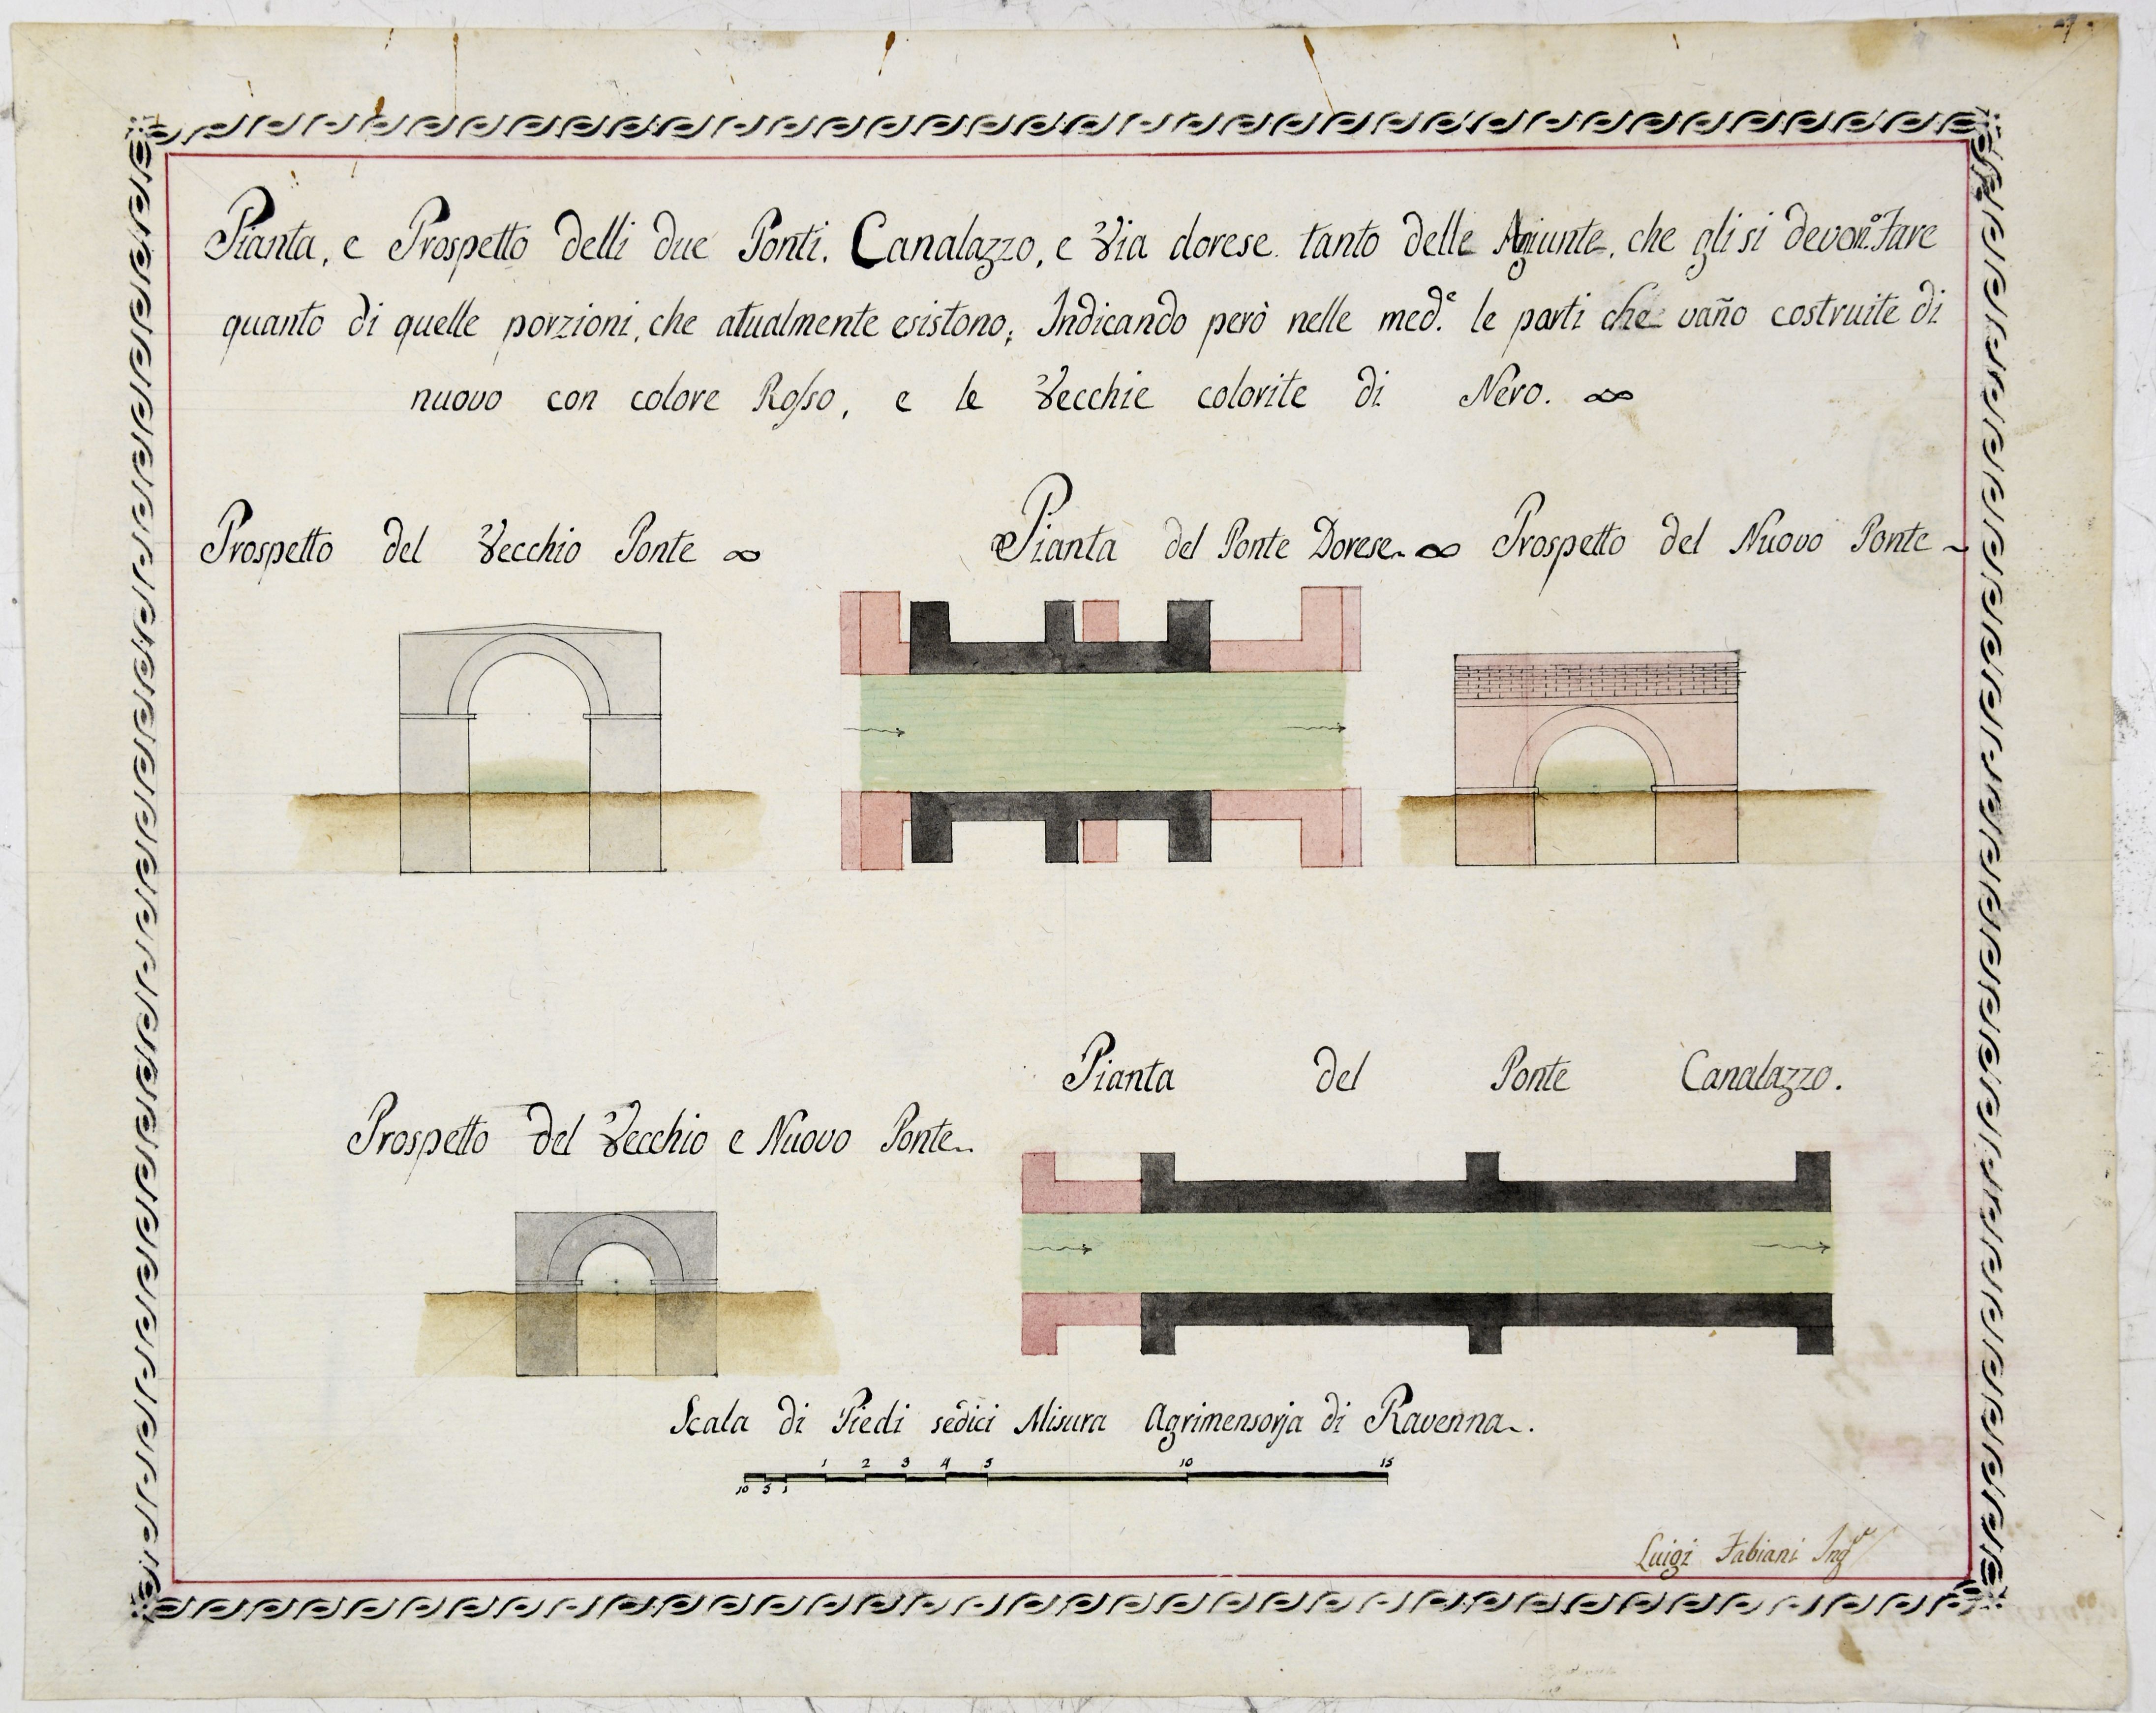 Pianta, e Prospetto delli due Ponti, Canalazzo, e Via dorese tanto delle Agiunte, che gli si devonº. Fare
quanto di quelle porzioni, che atualmente esistono; Indicando però nelle med.ᵉ le parti che vañο costruite di
nuovo con colore Roſso, e le Vecchie colorite di Nero.
Prospetto del Vecchio Ponte
Pianta del Ponte Dorese
Prospetto del Nuovo Ponte
Pianta del Ponte Canalazzo.
Prospetto del Vecchio e Nuovo Ponte
Scala di Piedi sedici Misura Agrimensorja di Ravenna.
1 2 3 4 5 10 15
10 5 1
Luigi Fabiani Ingʳ